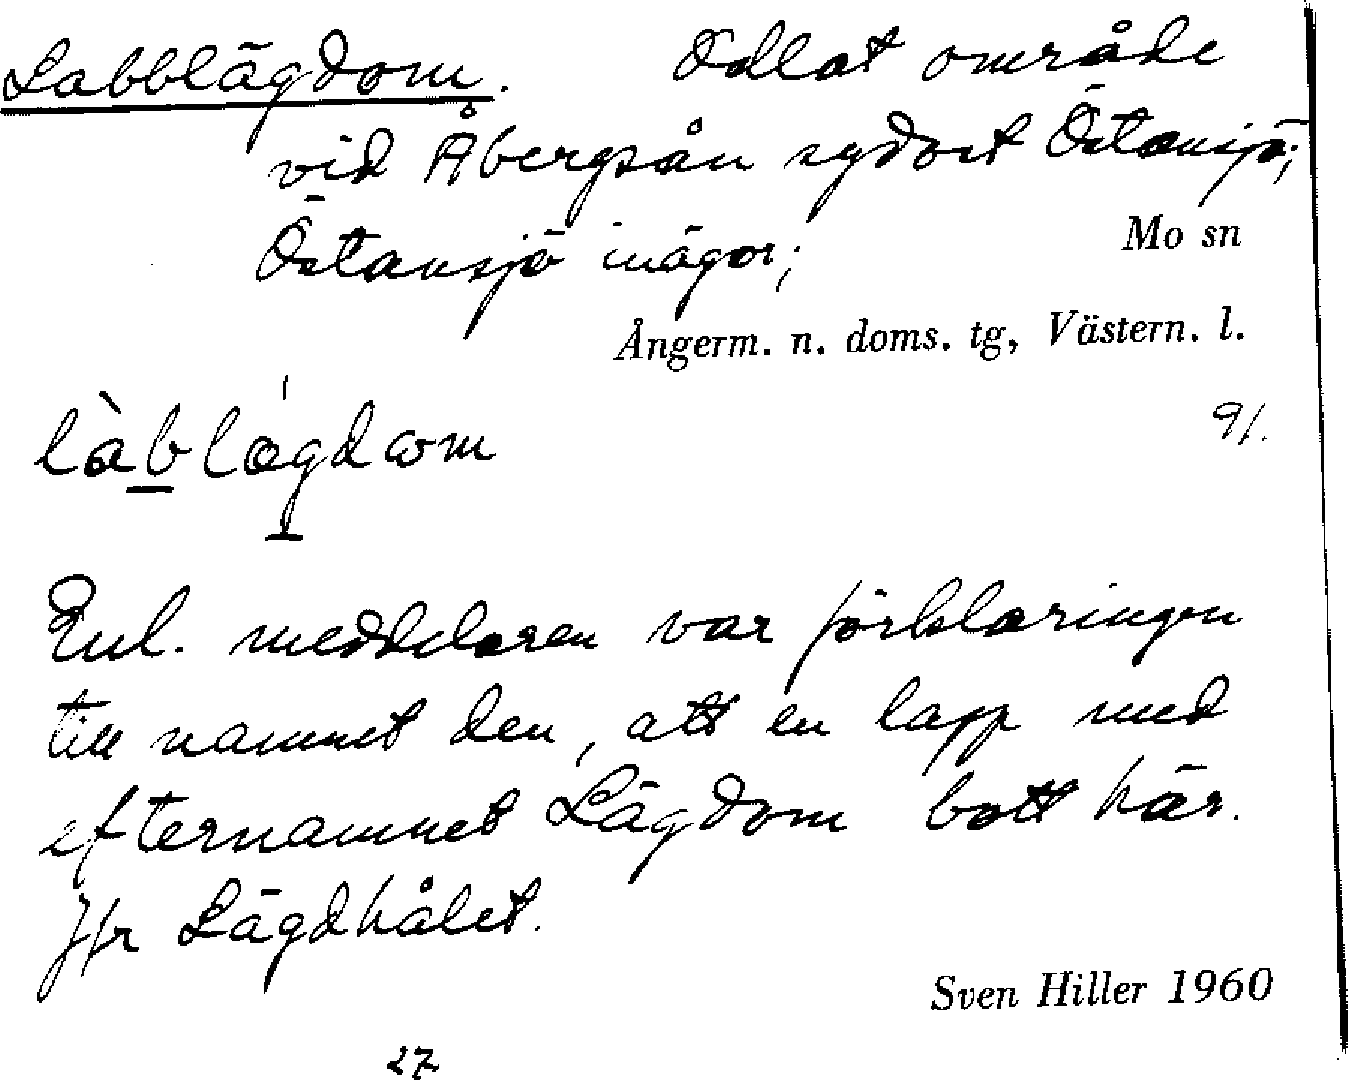 Labblägdom. Odlat område
vid Åbergsån sydost Östansjö;
Östansjö inägor;
Mo sn
Ångerm. n. doms. tg, Västern. l.
91.
làblægdωm
Enl. meddelaren var förklaringen
till namnet den, att en lapp med
efternamnet Lägdom bott här.
Jfr Lägdhålet.
Sven Hiller 1960
27